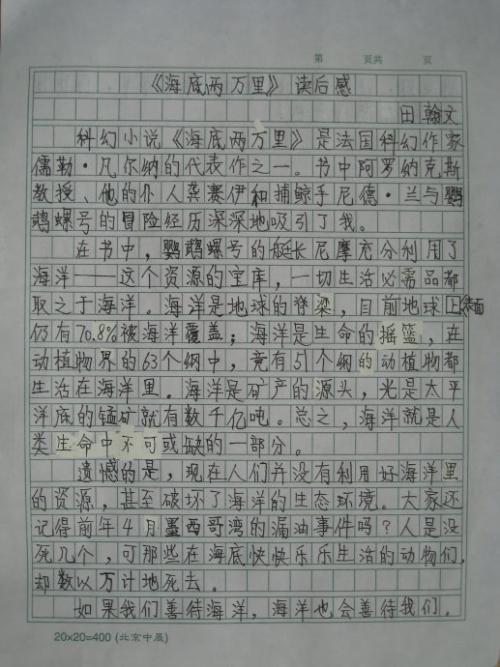 第 页共 页
《海底两万里》读后感
田翰文
科幻小说《海底两万里》是法国科幻作家
儒勒·凡尔纳的代表作之一。书中阿罗纳克斯
教授、他的仆人龚赛伊和捕鲸手尼德·兰与鹦
鹉螺号的冒险经历深深地吸引了我。
在书中,鹦鹉螺号的艇长尼摩充分利用了
海洋——这个资源的宝库,一切生活必需品都
取之于海洋。海洋是地球的脊梁,目前地球上表面
仍有70.8%被海洋覆盖;海洋是生命的摇篮,在
动植物界的63个纲中,竟有51个纲的动植物都
生活在海洋里。海洋是矿产的源头,光是太平
洋底的锰矿就有数千亿吨。总之,海洋就是人
类生命中不可或缺的一部分。
遗憾的是,现在人们并没有利用好海洋里
的资源,甚至破坏了海洋的生态环境。大家还
记得前年4月墨西哥湾的漏油事件吗?人是没
死几个,可那些在海底快快乐乐生活的动物们,
却数以万计地死去。
如果我们善待海洋,海洋也会善待我们,
20×20=400 (北京中展)